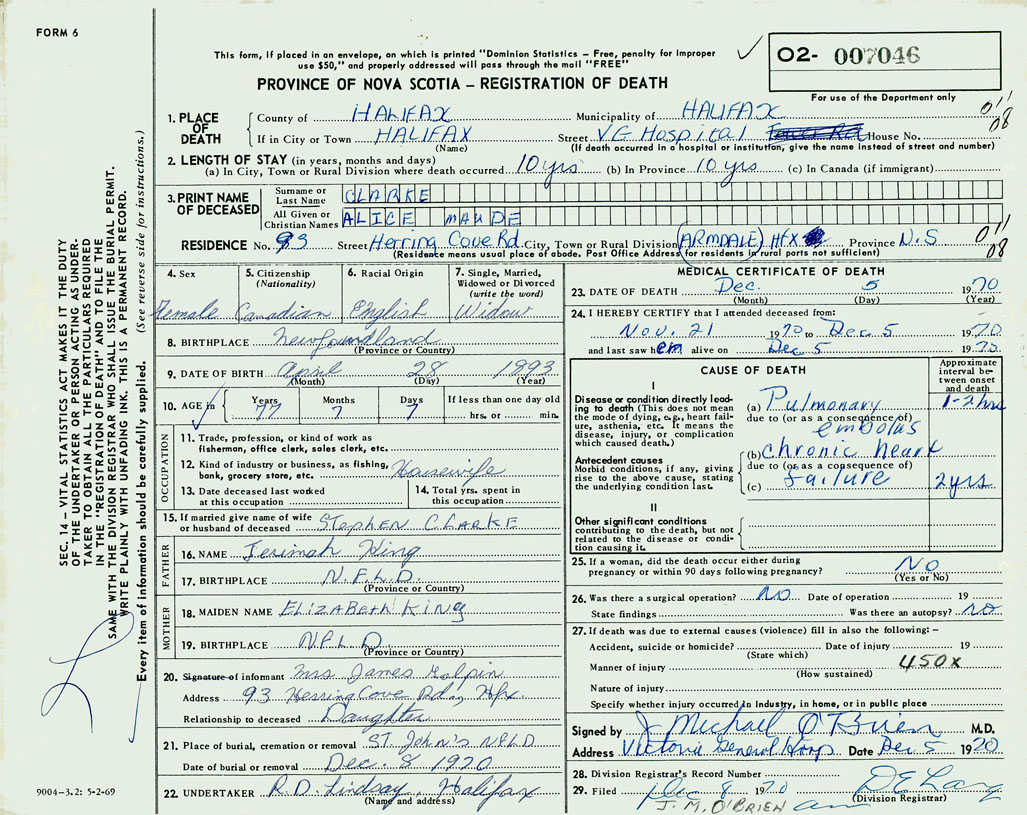 FORM 6
This form, if placed in an envelope, on which is printed "Dominion Statistics – Free, penalty for improper
use $50," and properly addressed will pass through the mail "FREE"
02- 007046
PROVINCE OF NOVA SCOTIA – REGISTRATION OF DEATH
For use of the Department only
1. PLACE OF DEATH
County of HALIFAX Municipality of HALIFAX 011
If in City or Town HALIFAX Street VG Hospital House No. 08
(Name) (If death occurred in a hospital or institution, give the name instead of street and number)
2. LENGTH OF STAY (in years, months and days)
(a) In City, Town or Rural Division where death occurred 10 yrs (b) In Province 10 yrs (c) In Canada (if immigrant)
3. PRINT NAME OF DECEASED
Surname or Last Name CLARKE
All Given or Christian Names ALICE MAUDE
RESIDENCE No. 93 Street Herring Cove Rd. City, Town or Rural Division (ARMDALE) HFX Province N.S 011
(Residence means usual place of abode. Post Office Address for residents in rural parts not sufficient) 08
4. Sex
Female
5. Citizenship
(Nationality)
Canadian
6. Racial Origin
English
7. Single, Married,
Widowed or Divorced
(write the word)
Widow
8. BIRTHPLACE Newfoundland
(Province or Country)
9. DATE OF BIRTH April 28 1993
(Month) (Day) (Year)
10. AGE in
Years 77
Months 7
Days 7
If less than one day old
hrs. or min.
OCCUPATION
11. Trade, profession, or kind of work as
fisherman, office clerk, sales clerk, etc.
12. Kind of industry or business, as fishing,
bank, grocery store, etc. Housewife
13. Date deceased last worked
at this occupation
14. Total yrs. spent in
this occupation
15. If married give name of wife
or husband of deceased STEPHEN CLARKE
FATHER
16. NAME Jerimah King
17. BIRTHPLACE N.F.L.D.
(Province or Country)
MOTHER
18. MAIDEN NAME ELIZABETH KING
19. BIRTHPLACE N.F.L.D
(Province or Country)
20. Signature of informant Mrs James Galpin
Address 93 Herring Cove Rd., Hfx.
Relationship to deceased Daughter
21. Place of burial, cremation or removal ST. JOHN'S NFLD
Date of burial or removal Dec. 8 1970
22. UNDERTAKER R.D. Lindsay, Halifax
(Name and address)
MEDICAL CERTIFICATE OF DEATH
23. DATE OF DEATH Dec. 5 1970
(Month) (Day) (Year)
24. I HEREBY CERTIFY that I attended deceased from:
Nov. 21 1970 to Dec 5 1970
and last saw her alive on Dec 5 1970
CAUSE OF DEATH
Approximate
interval be-
tween onset
and death
I
Disease or condition directly lead-
ing to death (This does not mean
the mode of dying, e.g., heart fail-
ure, asthenia, etc. It means the
disease, injury, or complication
which caused death.)
(a) Pulmonary 1-2 hrs
due to (or as a consequence of)
embolus
Antecedent causes
Morbid conditions, if any, giving
rise to the above cause, stating
the underlying condition last.
(b) chronic heart
due to (or as a consequence of)
(c) failure 2 yrs
II
Other significant conditions
contributing to the death, but not
related to the disease or condi-
tion causing it.
25. If a woman, did the death occur either during
pregnancy or within 90 days following pregnancy? NO
(Yes or No)
26. Was there a surgical operation? NO Date of operation 19
State findings Was there an autopsy? NO
27. If death was due to external causes (violence) fill in also the following: –
Accident, suicide or homicide? Date of injury 19
(State which)
Manner of injury 450X
(How sustained)
Nature of injury
Specify whether injury occurred in industry, in home, or in public place
Signed by J Michael O'Brien M.D.
Address Victoria General Hosp. Date Dec 5 1970
28. Division Registrar's Record Number
29. Filed Dec 8 1970
(Division Registrar)
J. M. O'BRIEN
SEC. 14 – VITAL STATISTICS ACT MAKES IT THE DUTY
OF THE UNDERTAKER OR PERSON ACTING AS UNDER-
TAKER TO OBTAIN ALL THE PARTICULARS REQUIRED
IN THE "REGISTRATION OF DEATH" AND TO FILE THE
SAME WITH THE DIVISION REGISTRAR WHO SHALL ISSUE THE BURIAL PERMIT.
WRITE PLAINLY WITH UNFADING INK. THIS IS A PERMANENT RECORD.
Every item of information should be carefully supplied. (See reverse side for instructions.)
9004–3.2: 5-2-69